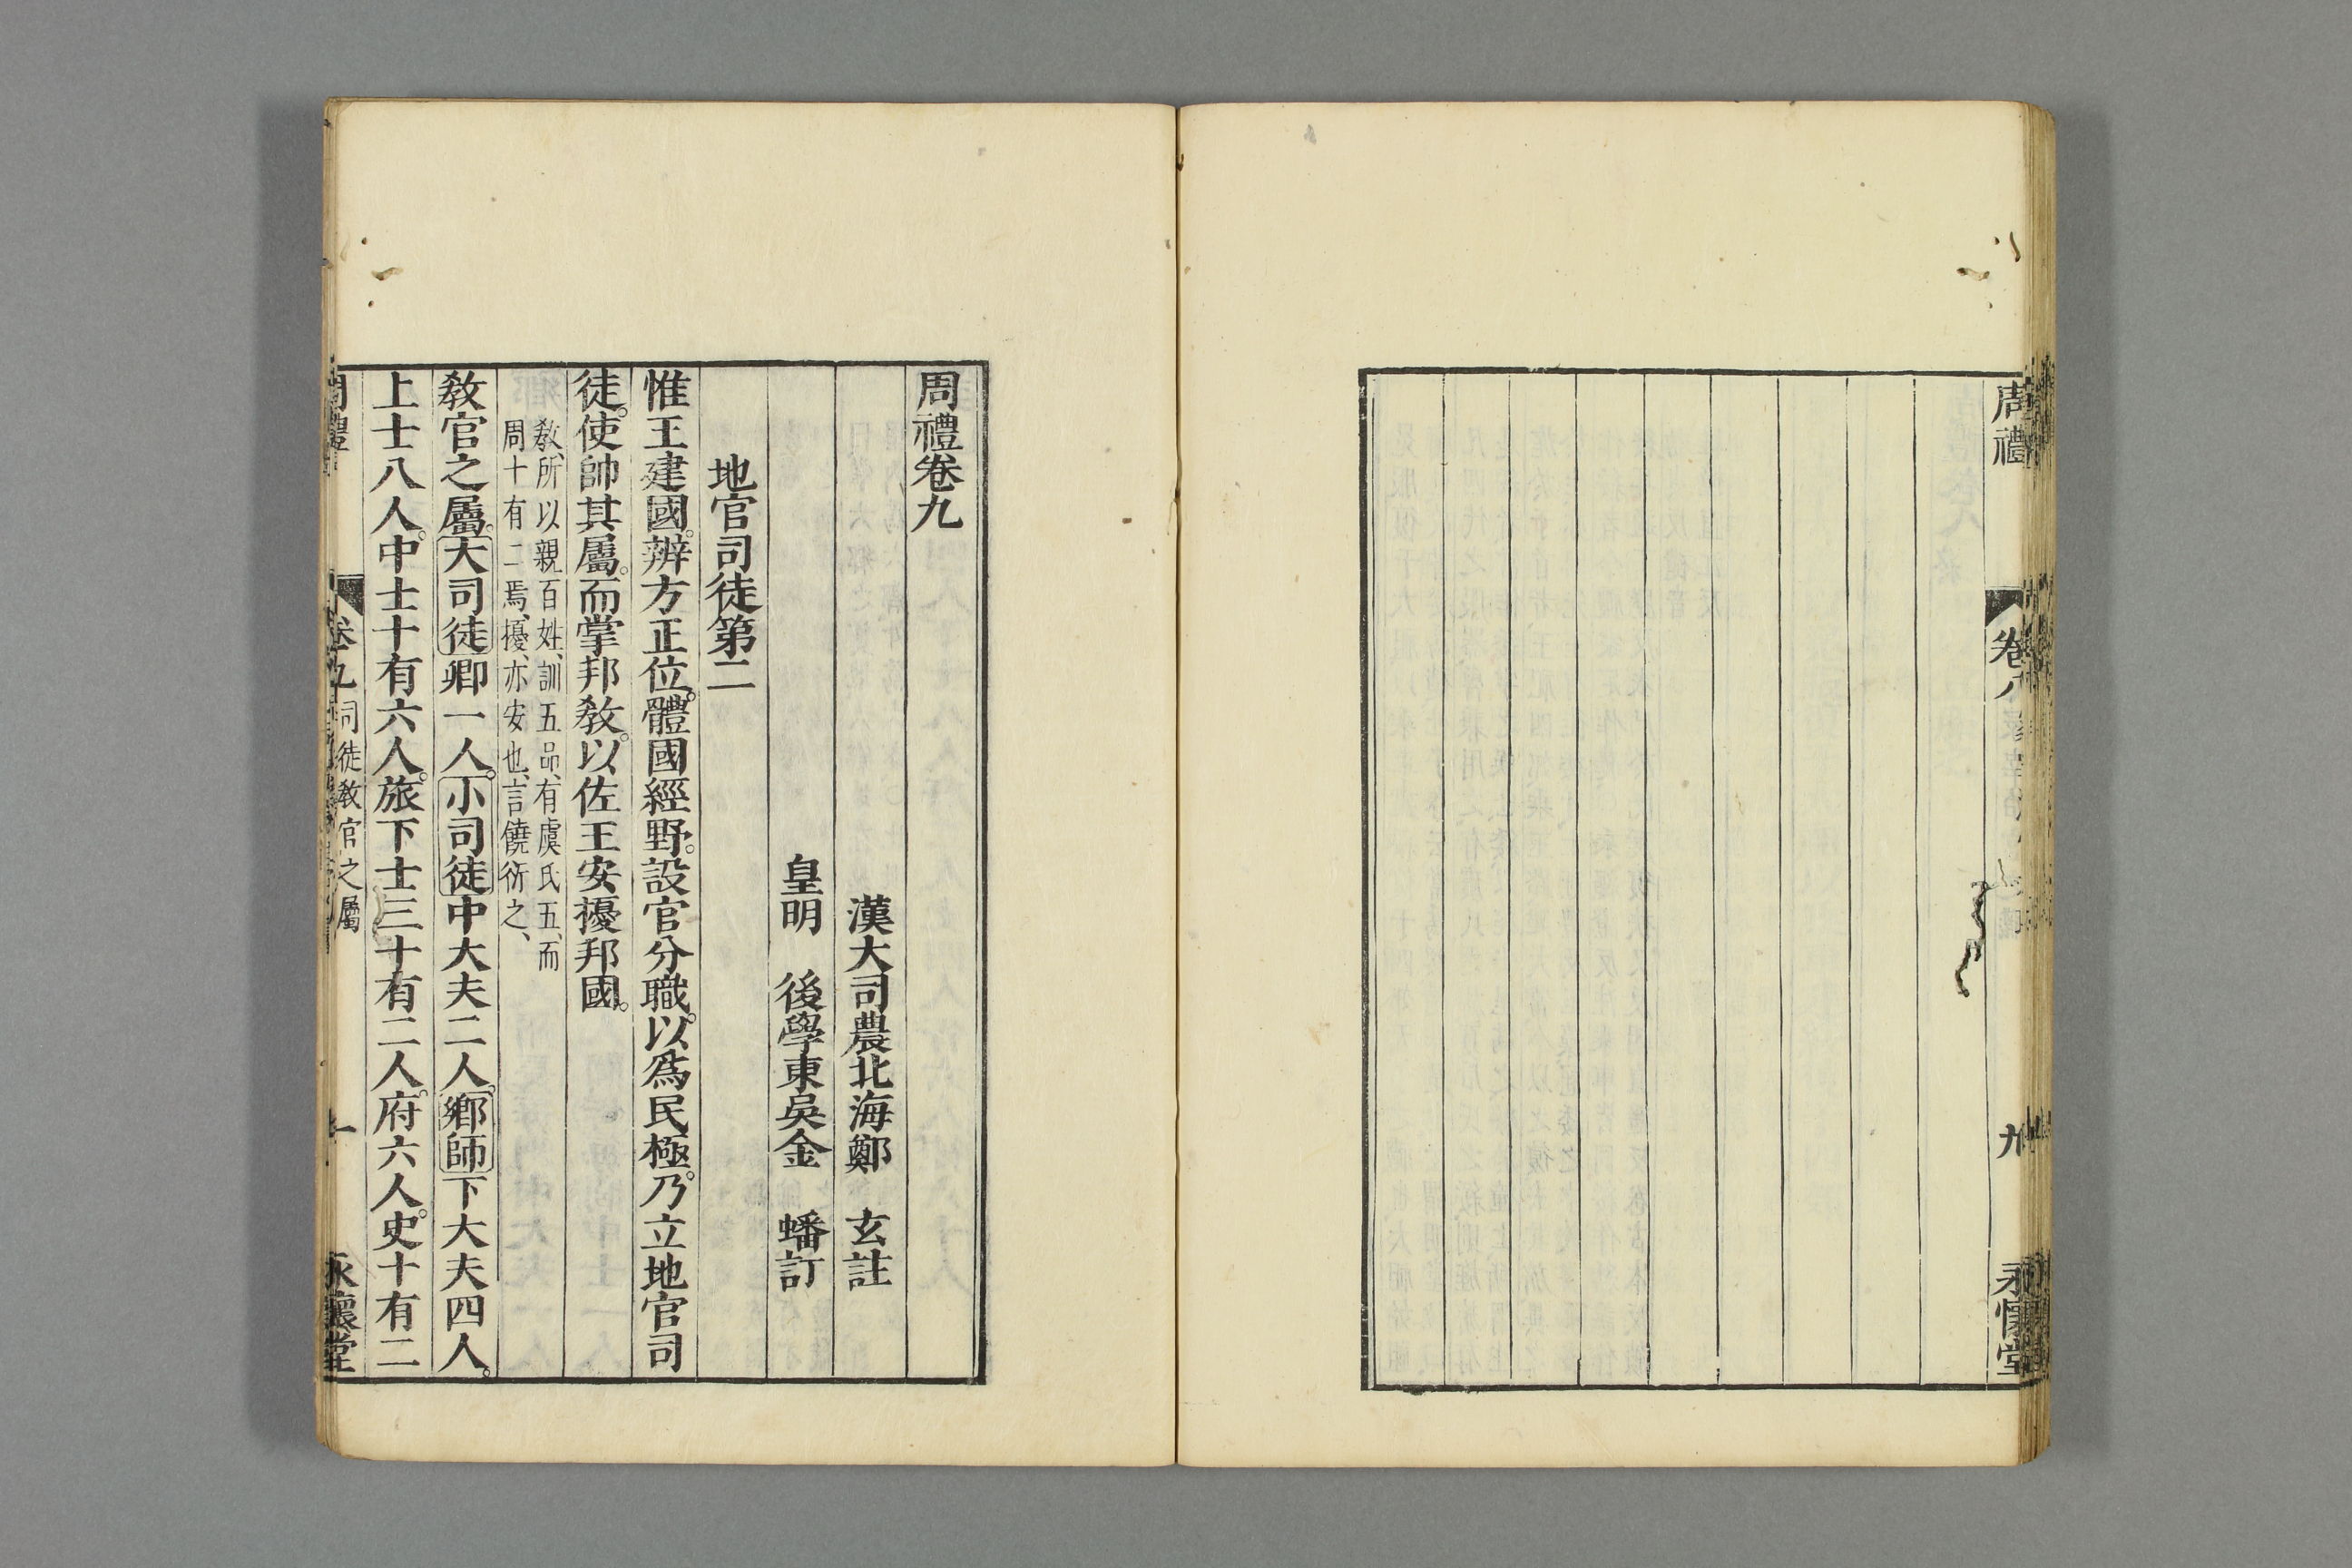 周禮
卷八
九
永懷堂
周禮卷九
漢大司農北海鄭 玄註
皇明 後學東吳金 蟠訂
地官司徒第二
惟王建國。辨方正位。體國經野。設官分職。以爲民極。乃立地官司
徒。使帥其屬。而掌邦敎。以佐王安擾邦國。
敎、所以親百姓、訓五品、有虞氏五、而
周十有二焉、擾、亦安也、言饒衍之、
敎官之屬。大司徒卿一人。小司徒中大夫二人。鄉師下大夫四人。
上士八人。中士十有六人。旅下士三十有二人。府六人。史十有二
周禮
卷九
司徒敎官之屬
一
永懷堂